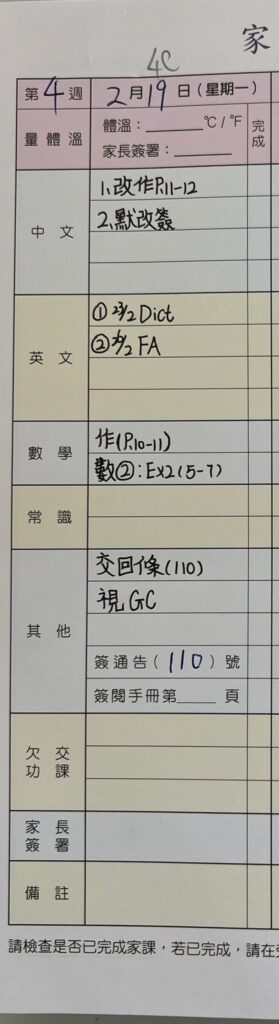 家
4C
第 4 週 2 月 19 日 (星期一)
量體溫 體溫：______℃/℉ 完成
家長簽署：______
中文 1.改作P.11-12
2.默改簽
英文 ① 23/2 Dict
② /2 FA
數學 作(P.10-11)
數②：Ex2(5-7)
常識
其他 交回條(110)
視GC
簽通告(110)號
簽閱手冊第____頁
欠交功課
家長簽署
備註
請檢查是否已完成家課，若已完成，請在